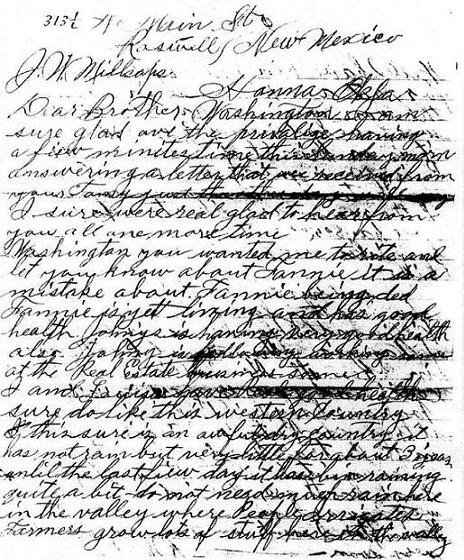 313½ N. Main St.
Roswell, New Mexico
J. W. Millsaps.
Hanna, Okla.
Dear Brother Washington
sure glad ove the privilige having
a few minites time this
answering a letter that we received from
your Famly just the other
I sure were real glad to hear from
you all one more time
Washington you wanted me to rite and
let you know about Fannie it is a
mistake about Fannie being ded
Fannie is yet living and has good
health Johnys is having very good health
also Johny is working some
at the Real Estate buisness
I and have good health
sure do like this western Country
this sure is an awful dry country it
has not rain but very little for about
until the last few days it has bin raining
quite a bit do not need much rain here
in the valley where People irrigate
Farmers grow lots of stuff here in the valley